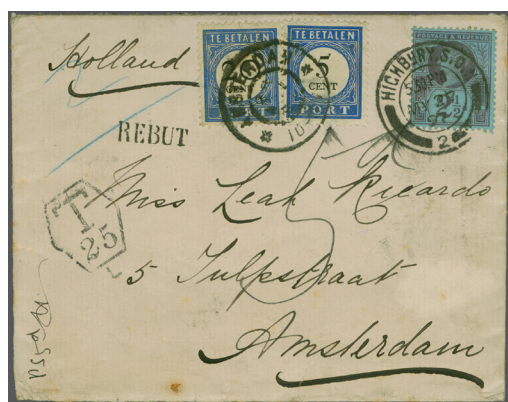 Holland
TE BETALEN
CENT
TE BETALEN
5
CENT
PORT
POSTAGE & REVENUE
2½
HIGHBURY.S.O.
2
REBUT
T
25
Miss Leah Ricardo
5 Tulpstraat
Amsterdam